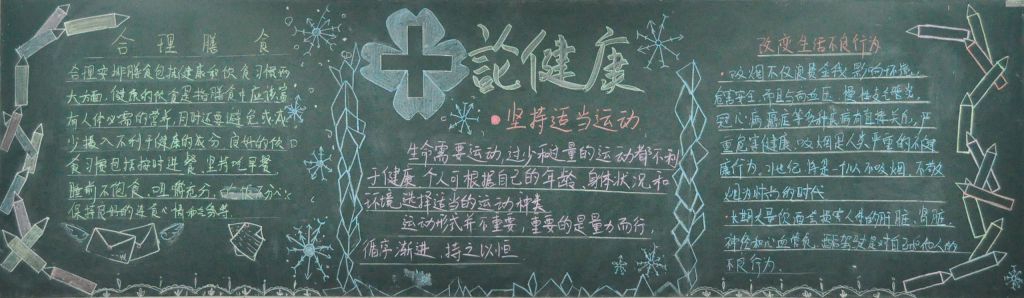 合理膳食
合理安排膳食包括健康和饮食习惯两
大方面,健康的饮食是指膳食中应该富
有人体必需的营养,同时还要避免或减
少摄入不利于健康的成分,良好的饮
食习惯包括按时进餐,坚持吃早餐,
睡前不饱食,咀嚼充分,
保持良好的进食心情和
説健康
坚持适当运动
生命需要运动,过少和过量的运动都不利
于健康,个人可根据自己的年龄、身体状况和
环境选择适当的运动种类
运动形式并不重要,重要的是量力而行,
循序渐进,持之以恒
改变生活不良行为
吸烟不仅浪费金钱,影响环境,
危害安全,而且与高血压、慢性支气管炎、
冠心病、癌症等多种疾病有直接关系,严
重危害健康,吸烟是人类严重的不健
康行为,21世纪将是一个以不吸烟、不敬
烟为时尚的时代
长期大量饮酒或损害人体的肝脏、肾脏、
神经和心血管,
不良行为.